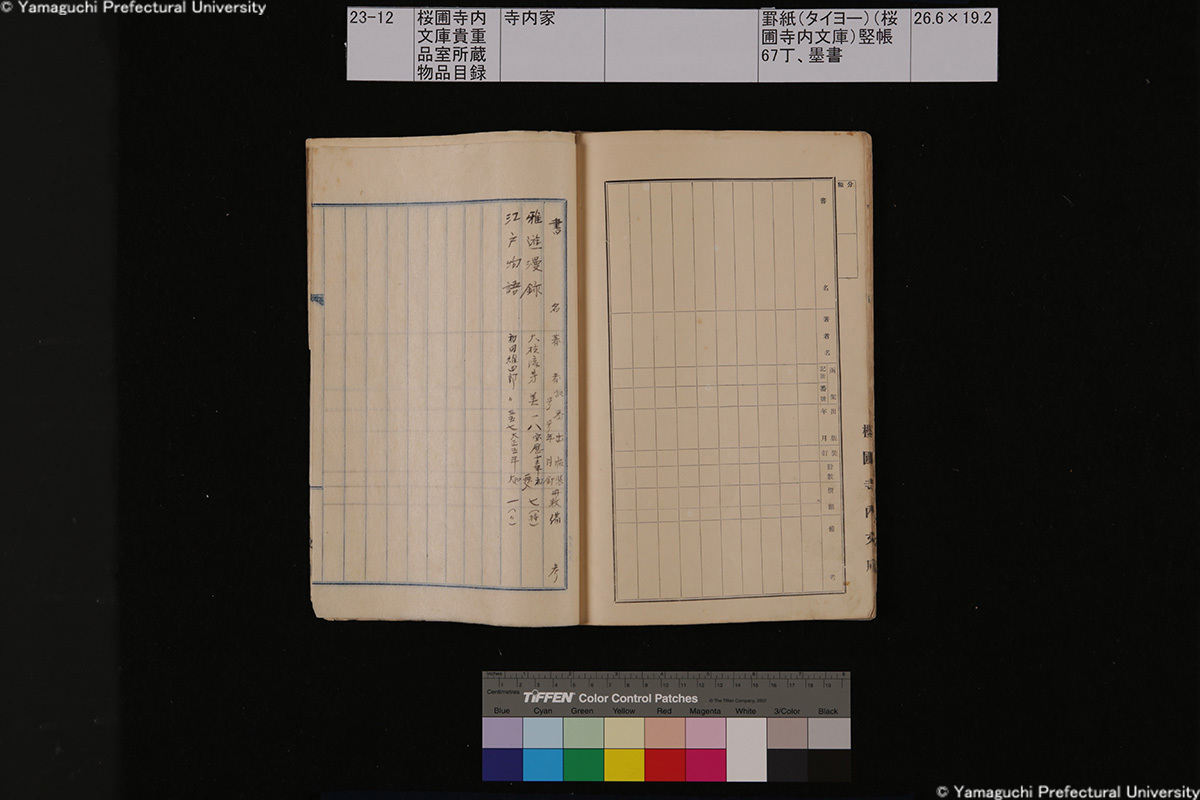 © Yamaguchi Prefectural University
23-12
桜圃寺内
文庫貴重
品室所蔵
物品目録
寺内家
罫紙(タイヨー)(桜
圃寺内文庫)竪帳
67丁、墨書
26.6×19.2
分
類
書名
著者名
函架
記号
番号
出版
年月
装
訂
冊数
備考
櫻圃寺内文庫
書名 著者 出版 冊数 備考
雅遊漫録 大枝流芳 美 一八 七
江戸物語 和田維四郎 一
Inches
Centimetres
TIFFEN Color Control Patches
© The Tiffen Company, 2007
Blue Cyan Green Yellow Red Magenta White 3/Color Black
© Yamaguchi Prefectural University